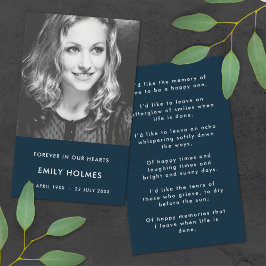 FOREVER IN OUR HEARTS
EMILY HOLMES
APRIL 19XX | 22 JULY 20XX
I'd like the memory of
me to be a happy one.
I'd like to leave an
afterglow of smiles when
life is done.
I'd like to leave an echo
whispering softly down
the ways,
Of happy times and
laughing times and
bright and sunny days.
I'd like the tears of
those who grieve, to dry
before the sun;
Of happy memories that
I leave when life is
done.